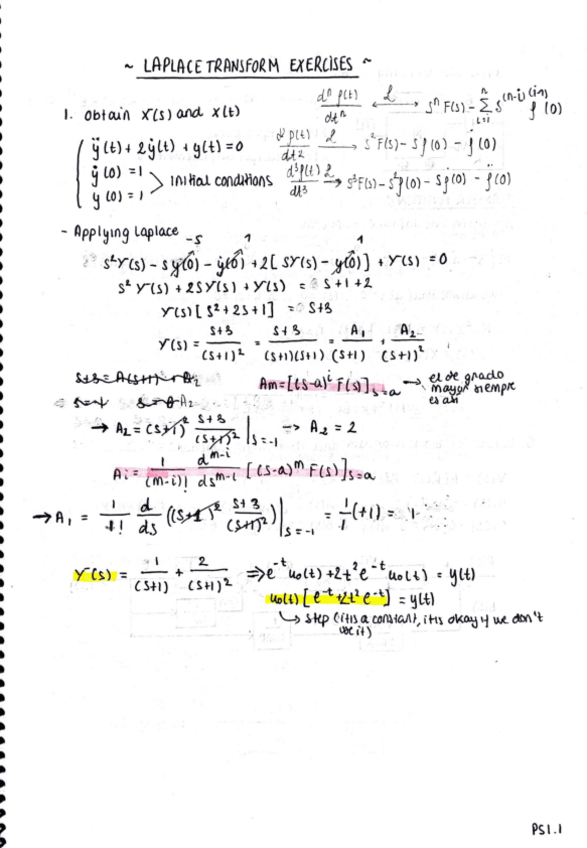 ~ LAPLACE TRANSFORM EXERCISES ~
1. Obtain X(s) and x(t)
dⁿf(t)/dtⁿ ←ℒ→ sⁿF(s) - Σ_{i=1}^{n} s^(n-i) f^(i-1)(0)
ÿ(t) + 2ẏ(t) + y(t) = 0
d²f(t)/dt² ℒ→ s²F(s) - sf(0) - ḟ(0)
ẏ(0) = 1
y(0) = 1 > Initial conditions
d³f(t)/dt³ ℒ→ s³F(s) - s²f(0) - sḟ(0) - f̈(0)
- Applying Laplace
-s 1 1
s²Y(s) - sy(0) - ẏ(0) + 2[sY(s) - y(0)] + Y(s) = 0
s²Y(s) + 2sY(s) + Y(s) = s+1+2
Y(s)[s²+2s+1] = s+3
Y(s) = (s+3)/(s+1)² = (s+3)/((s+1)(s+1)) = A₁/(s+1) + A₂/(s+1)²
s+3 = A(s+1) + A₂
Am = [(s-a)ⁱ F(s)]_{s=a} → el de grado
mayor siempre
es así
→ A₂ = (s+1)² (s+3)/(s+1)² |_{s=-1} → A₂ = 2
Ai = 1/(m-i)! d^{m-i}/ds^{m-i} [(s-a)^m F(s)]_{s=a}
→ A₁ = 1/1! d/ds ((s+1)² (s+3)/(s+1)²)|_{s=-1} = 1/1 (+1) = 1
Y(s) = 1/(s+1) + 2/(s+1)² ⇒ e^{-t} u₀(t) + 2t²e^{-t} u₀(t) = y(t)
u₀(t)[e^{-t} + 2t²e^{-t}] = y(t)
↳ step (it is a constant, it is okay if we don't
use it)
PS1.1